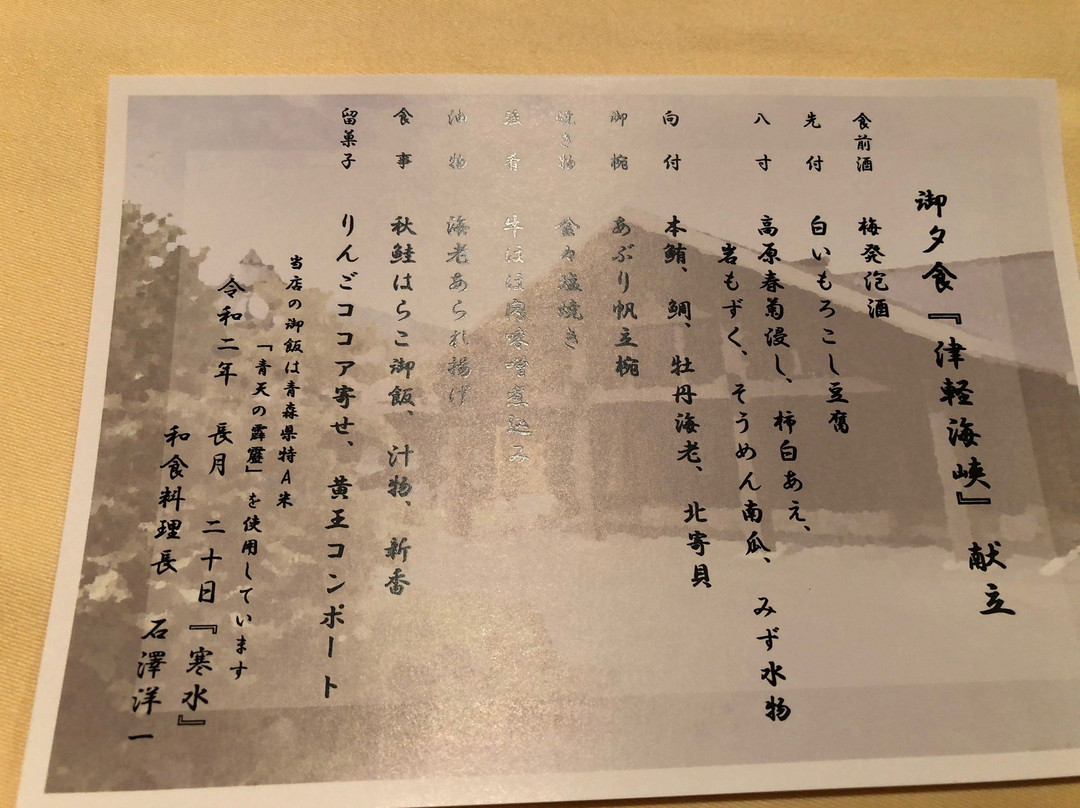 御夕食『津軽海峡』 献立
食前酒 梅発泡酒
先付 白いもろこし豆腐
八寸 高原春菊浸し、柿白あえ、
岩もずく、そうめん南瓜、みず水物
向付 本鮪、鯛、牡丹海老、北寄貝
御椀 あぶり帆立椀
焼き物 塩焼き
強肴 牛ほほ肉味噌煮込み
油物 海老あられ揚げ
食事 秋鮭はらこ御飯、汁物、新香
留菓子 りんごココア寄せ、黄王コンポート
当店の御飯は青森県特A米
「青天の霹靂」を使用しています
令和二年 長月 二十日『寒水』
和食料理長 石澤洋一